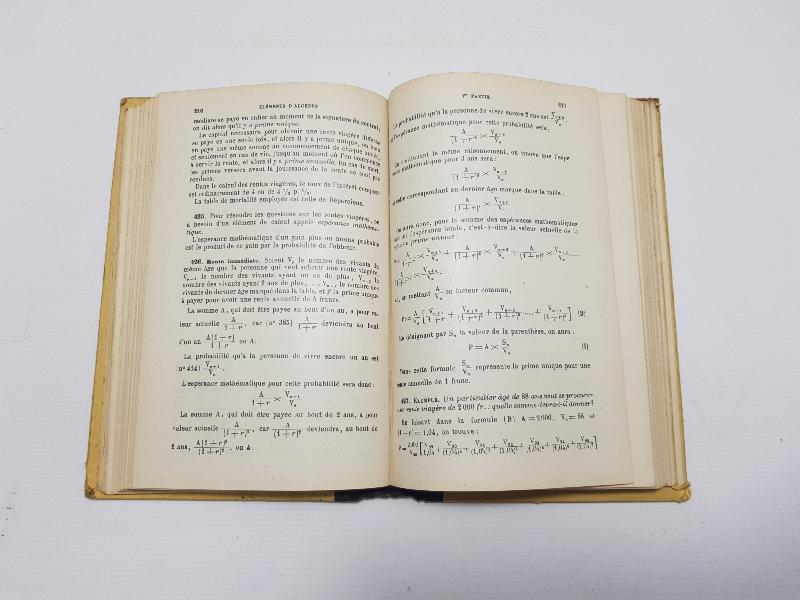 210 ÉLÉMENTS D'ALGÈBRE
médiate se paye en entier au moment de la signature du contrat;
on dit alors qu'il y a prime unique.
Le capital nécessaire pour obtenir une rente viagère différée
se paye en une seule fois, et alors il y a prime unique, ou bien
on paye une même somme au commencement de chaque année,
et seulement en cas de vie, jusqu'au moment où l'on commence
à servir la rente, et alors il y a prime annuelle. En cas de mort,
les primes versées avant la jouissance de la rente ne sont pas
rendues.
Dans le calcul des rentes viagères, le taux de l'intérêt composé
est ordinairement de 4 ou de 4 1/2 p. %.
La table de mortalité employée est celle de Deparcieux.
425. Pour résoudre les questions sur les rentes viagères, on
a besoin d'un élément de calcul appelé espérance mathéma-
tique.
L'espérance mathématique d'un gain plus ou moins probable
est le produit de ce gain par la probabilité de l'obtenir.
426. Rente immédiate. Soient Vn le nombre des vivants du
même âge que la personne qui veut acheter une rente viagère,
Vn+1 le nombre des vivants ayant un an de plus, Vn+2 le
nombre des vivants ayant 2 ans de plus, ..., le nombre des
vivants du dernier âge marqué dans la table, et P la prime unique
à payer pour avoir une rente annuelle de A francs.
La somme A, qui doit être payée au bout d'un an, a pour va-
leur actuelle A/(1+r), car (n° 385) A/(1+r) deviendra au bout
d'un an A(1+r)/(1+r) ou A.
La probabilité qu'a la personne de vivre encore un an est
(n° 414) Vn+1/Vn.
L'espérance mathématique pour cette probabilité sera donc:
A/(1+r) × Vn+1/Vn
La somme A, qui doit être payée au bout de 2 ans, a pour
valeur actuelle A/(1+r)², car A/(1+r)² deviendra, au bout de
2 ans, A(1+r)²/(1+r)², ou A.
1re PARTIE 211
La probabilité qu'a la personne de vivre encore 2 ans est Vn+2/Vn.
l'espérance mathématique pour cette probabilité sera,
A/(1+r)² × Vn+2/Vn
le même raisonnement, on trouve que l'espé-
mathématique pour 3 ans sera:
A/(1+r)³ × Vn+3/Vn
celle correspondant au dernier âge marqué dans la table:
On aura donc, pour la somme des espérances mathématiques
ou l'espérance totale, c'est-à-dire la valeur actuelle de la
prime unique:
ou, en mettant A/Vn en facteur commun,
En désignant par Sn la valeur de la parenthèse, on aura:
P = A × Sn/Vn
Dans cette formule Sn/Vn représente la prime unique pour une
rente annuelle de 1 franc.
427. EXEMPLE. Un particulier âgé de 88 ans veut se procurer
une rente viagère de 2 000 fr.: quelle somme devra-t-il donner?
En faisant dans la formule (B) A = 2000, Vn = 88 et
(1+r) = 1,04, on trouve: